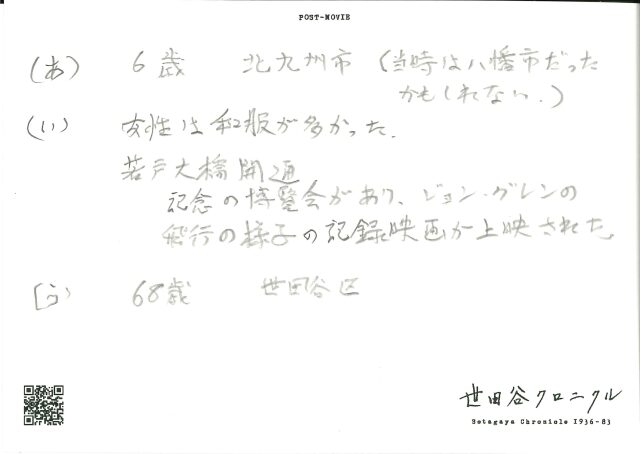 POST-MOVIE
(あ) 6歳 北九州市 (当時は八幡市だった
かもしれない.)
(い) 女性は和服が多かった.
若戸大橋開通
記念の博覧会があり、ジョン・グレンの
飛行の様子の記録映画が上映された。
(う) 68歳 世田谷区
世田谷クロニクル
Setagaya Chronicle 1936-83